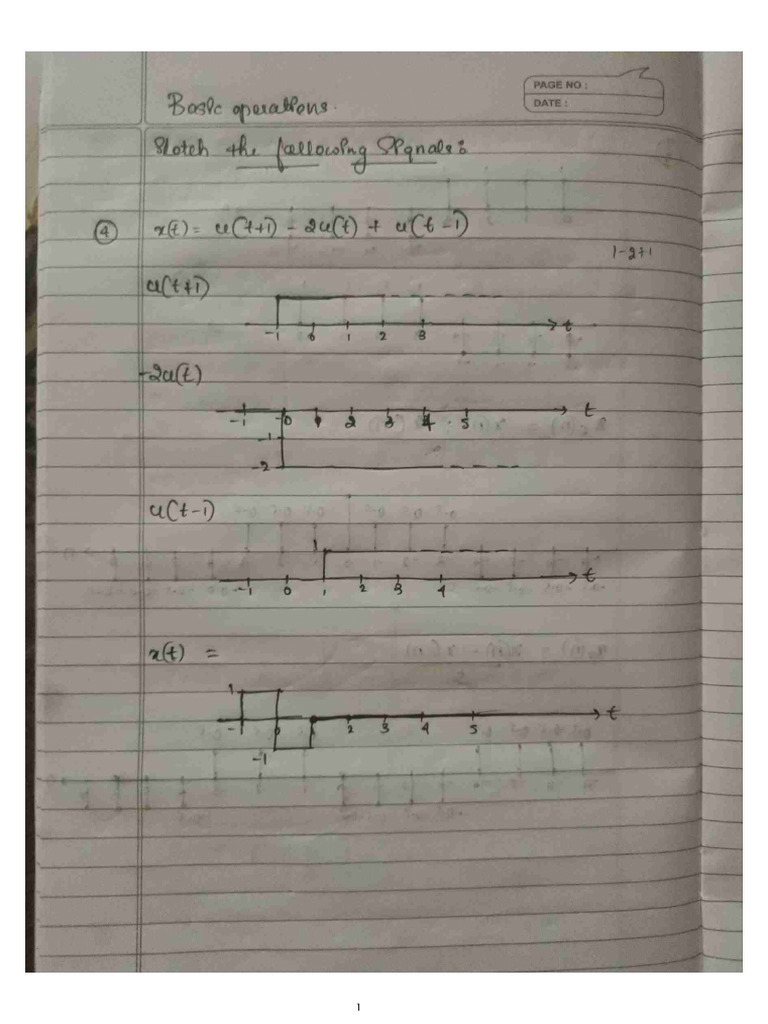 PAGE NO :
DATE :
Basic operations.
Sketch the following Signals:
④ x(t) = u(t+1) - 2u(t) + u(t-1)
1-2+1
u(t+1)
-1 0 1 2 3 t
-2u(t)
-1 0 1 2 3 4 5 t
-1
-2
u(t-1)
1
-1 0 1 2 3 4 t
x(t) =
1
-1 0 1 2 3 4 5 t
-1
1